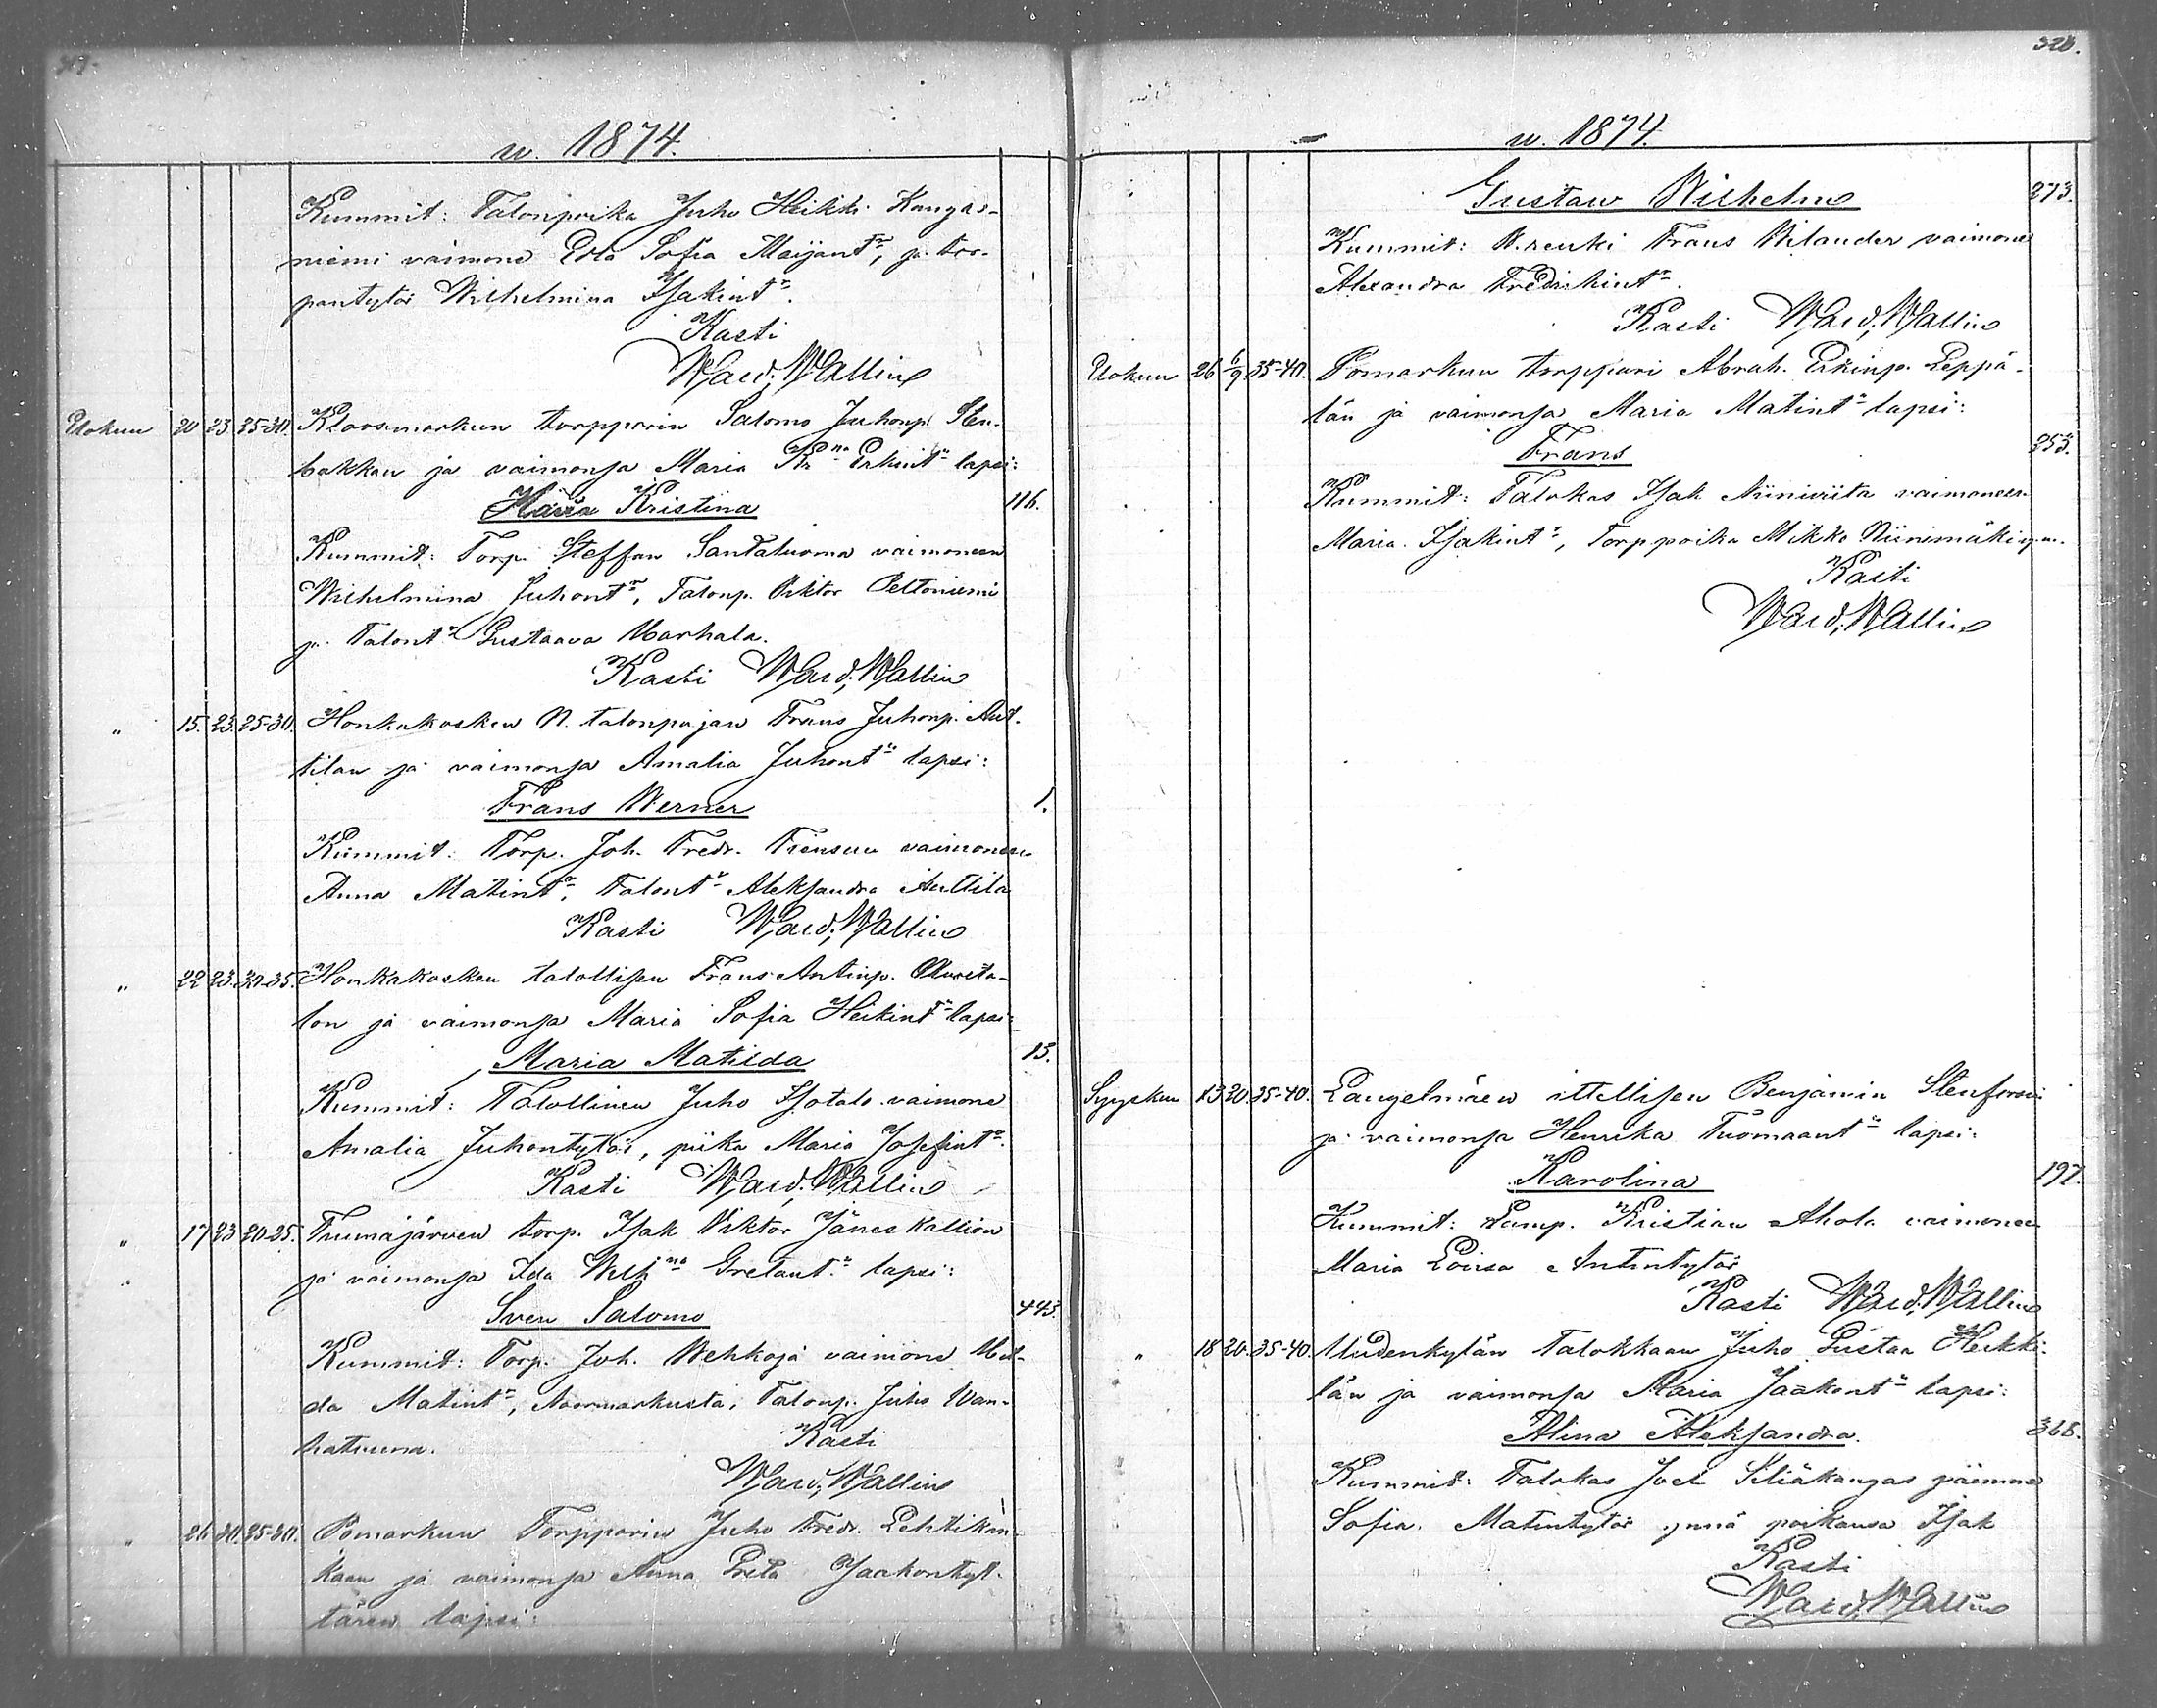 w. 1874.
Kummit: Talonpoika Juho Heikki Kangas-
niemi vaimone Eva Sofia Maijantr, ja tor-
pantytär Wilhelmina Isakintr.
Kasti
Wald. Wallin
Elokuu 20 23 25-30. Kloosmarkun torpparin Salomo Juhonp. Sten-
bakkan ja vaimonsa Maria Krna Erkintn lapsi:
Kristina 116.
Kummit: Torp. Steffan Santaluoma vaimoneen
Wilhelmina Juhontr, Talonp. Viktor Peltoniemi
ja Talontr Gustaava Uarhala.
Kasti Wald. Wallin
" 15. 23. 25-30. Honkakosken N. talonpojan Frans Juhonp. Ant-
tilan ja vaimonsa Amalia Juhontn lapsi:
Frans Werner 1.
Kummit: Torp. Joh. Fredr. vaimoneen
Anna Matintr, Talontr Aleksandra Anttila
Kasti Wald. Wallin
" 22 23. 30-35. Honkakosken talollisen Frans Antinp. Uusita-
lon ja vaimonsa Maria Sofia Heikintn lapsi:
Maria Matilda 13.
Kummit: Talollinen Juho Isotalo vaimone
Amalia Juhontytär, piika Maria Josefintr.
Kasti Wald. Wallin
" 17 23 20-25. Tuunajärven torp. Isak Viktor Jänes Kallion
ja vaimonsa Ida Wilhna Gretantn lapsi:
Sven Salomo 443.
Kummit: Torp. Joh. Wehkoja vaimone Mat-
da Matintr, Noormarkusta; Talonp. Juho Wan-
hatuuna. Kasti
Wald. Wallin
" 26 30. 25-30. Pomarkun Torpparin Juho Fredr. Lehtikan-
kaan ja vaimonsa Anna Greta Jaakontyt-
tären lapsi:
328.
w. 1874.
Gustaw Wilhelm 273.
Kummit: N. renki Frans Welander vaimone
Alexandra Fredrikintr.
Kasti Wald. Wallin
Elokuu 26 6/9. 35-40. Pomarkun torppari Abrah. Erkinp. Leppä-
län ja vaimonsa Maria Matintn lapsi:
Frans 253.
Kummit: Talokas Isak Niiniviita vaimoneen
Maria Isakintr, Torppoika Mikko Niinimäki y.m.
Kasti
Wald. Wallin
Syyskuu 13 20. 35-40. Langelmäen ittellisen Benjamin Stenforssi
ja vaimonsa Henrika Tuomaantn lapsi:
Karolina 197.
Kummit: Lamp. Kristian Ahola vaimoneen
Maria Lovisa Antintytär
Kasti Wald. Wallin
" 18 20. 35-40. Uudenkylän Talokkaan Juho Kustaa Heikki-
län ja vaimonsa Maria Jaakontn lapsi:
Alina Aleksandra. 368.
Kummit: Talokas Joel Siliäkangas vaimone
Sofia Matintytär ynnä poikansa Isak
Kasti
Wald. Wallin